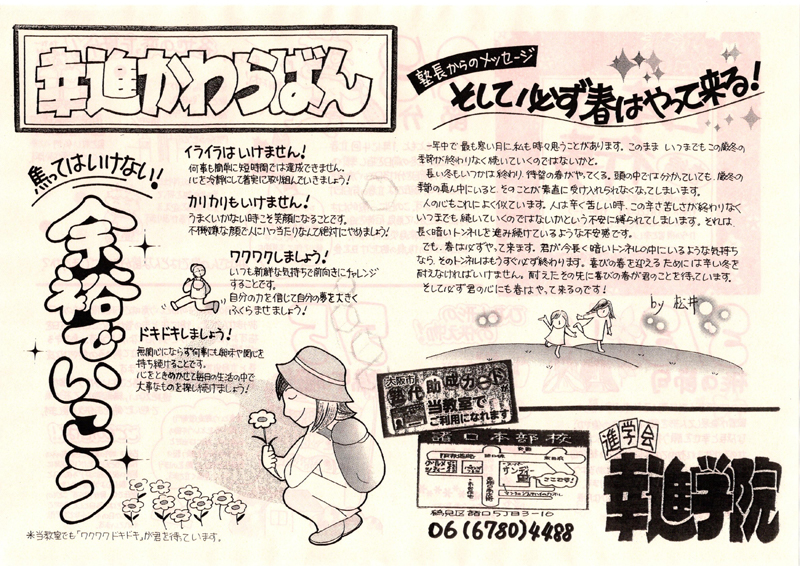 幸進かわらばん
焦ってはいけない!
余裕でいこう
イライラはいけません!
何事も簡単に短時間では達成できません。
心を冷静にして着実に取り組んでいきましょう!
カリカリもいけません!
うまくいかない時こそ笑顔になることです。
不機嫌な顔で人に八つ当たりなんて絶対にやめましょう!
ワクワクしましょう!
いつも新鮮な気持ちで前向きにチャレンジ
することです。
自分の力を信じて自分の夢を大きく
ふくらませましょう!
ドキドキしましょう!
無関心にならず何事にも興味や関心を
持ち続けることです。
心をときめかせて毎日の生活の中で
大事なものを探し続けましょう!
※当教室でも「ワクワクドキドキ」が君を待っています。
塾長からのメッセージ
そして必ず春はやって来る!
一年中で最も寒い月に私も時々思うことがあります。このままいつまでもこの厳冬の
季節が終わりなく続いていくのではないかと。
長い冬もいつかは終わり、待望の春がやってくる。頭の中では分かっていても、厳冬の
季節の真ん中にいると、そのことが素直に受け入れられなくなってしまいます。
人の心もこれによく似ています。人は辛く苦しい時、この辛さ苦しさが終わりなく
いつまでも続いていくのではないかという不安に縛られてしまいます。それは
長く暗いトンネルを進み続けているような不安感です。
でも、春は必ずやって来ます。君が今長く暗いトンネルの中にいるような気持ち
なら、そのトンネルはもうすぐ必ず終わります。喜びの春を迎えるためには辛い冬を
耐えなければいけません。耐えたその先に喜びの春が君のことを待っています。
そして必ず君の心にも春はやって来るのです!
by 松井
大阪市
塾代助成カード
当教室で
ご利用になれます
諸口本部校
サンディ
ここです!
鶴見区諸口5丁目3-16
06(6780)4488
進学会
幸進学院